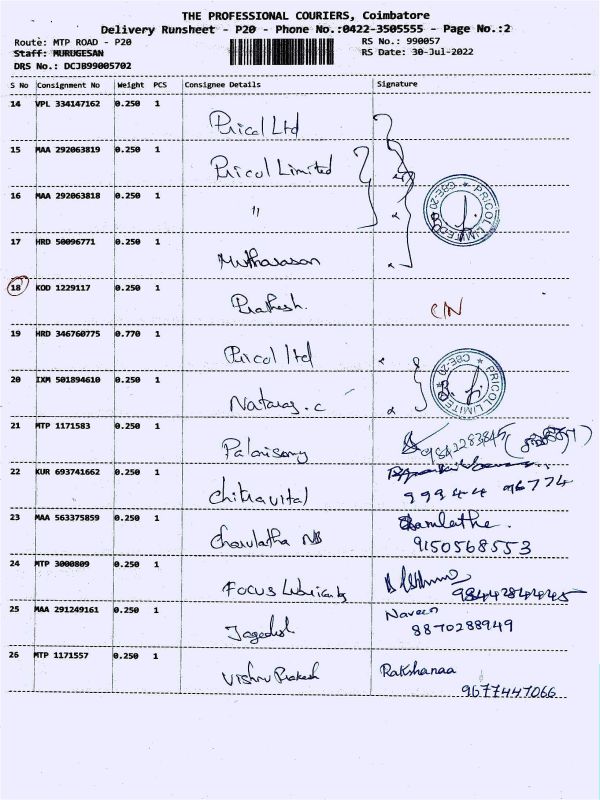 THE PROFESSIONAL COURIERS, Coimbatore
Delivery Runsheet - P20 - Phone No.:0422-3505555 - Page No.:2
Route: MTP ROAD - P20 RS No.: 990057
Staff: MURUGESAN RS Date: 30-Jul-2022
DRS No.: DCJB99005702
S No Consignment No Weight PCS Consignee Details Signature
14 VPL 334147162 0.250 1 Pricol Ltd
15 MAA 292063819 0.250 1 Pricol Limited
16 MAA 292063818 0.250 1 "
PRICOL LIMITED * CBE-20 *
17 HRD 50096771 0.250 1 Mutharasan
18 KOD 1229117 0.250 1 Prathesh. C/N
19 HRD 346760775 0.770 1 Pricol ltd
PRICOL LIMITED * CBE-20 *
20 IXM 501894610 0.250 1 Nataraj.c
21 MTP 1171583 0.250 1 Palanisamy 9842283845
22 KUR 693741662 0.250 1 Chitravital
99944 96774
23 MAA 563375859 0.250 1 Charulatha NS Charulathe.
9150568553
24 MTP 3000809 0.250 1 Focus Lubricants
25 MAA 291249161 0.250 1 Jagadish Naveen
8870288949
26 MTP 1171557 0.250 1 Vishnu Prakash Rakshanaa
9677447066